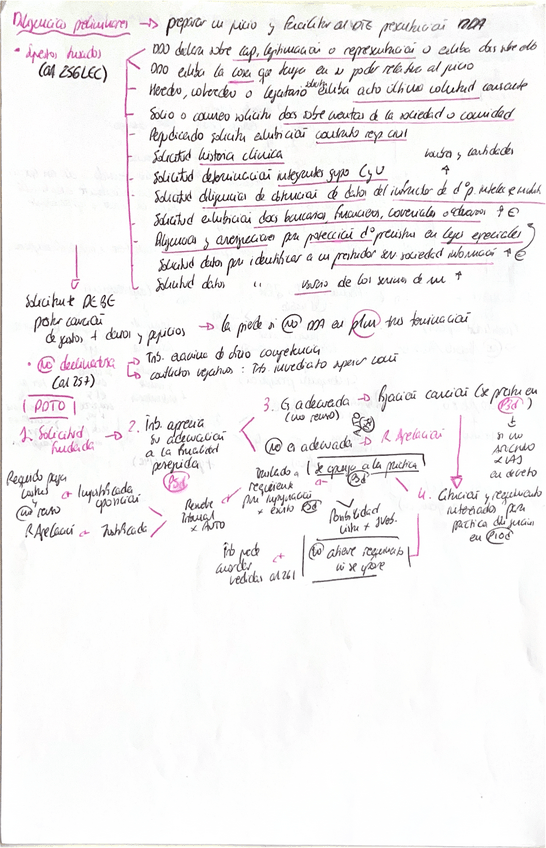 Diligencias preliminares → preparar un juicio y facilitar al DTE presentación DDA
• Supuestos tasados
(art 256 LEC)
DDO declara sobre cap, legitimación o representación o exhiba docs sobre ello
DDO exhiba la cosa que tenga en su poder relativa al juicio
Heredero, coheredero o legatario solicita exhiba acto última voluntad causante
Socio o comunero solicita docs sobre cuentas de la sociedad o comunidad
Perjudicado solicita exhibición contrato resp civil
Solicitud historia clínica
Solicitud determinación integrantes grupo CyU
Solicitud diligencias de obtención de datos del infractor de dº p. intelec e indust.
Solicitud exhibición docs bancarios, financieros, comerciales o aduaneros
Diligencias y averiguaciones para protección dº previstas en leyes especiales
Solicitud datos para identificar a un prestador serv sociedad información
Solicitud datos " usuario de los servicios de
Solicitante DEBE
prestar caución
de gastos + daños y perjuicios → la pierde si NO DDA en 1 mes tras terminación
• NO declinatoria
(art 257)
→ Trib. examina de oficio competencia
→ conflictos negativos: Trib inmediato superior común
PDTO
1. Solicitud
fundada
→ 2. Trib aprecia
su adecuación
a la finalidad
perseguida
5d
3. Es adecuada → Fijación caución (se presta en
(no recurso)
3d
↓
si no
archivo
x LAJ
en decreto
NO es adecuada → R Apelación
4. Citación y requerimiento
interesados para
práctica diligencias
en 10d
se opone a la práctica
5d
Traslado a
requirente
para impugnación
x escrito 5d
Posibilidad
vista
Resuelve
Tribunal
x AUTO
Injustificada
oposición
Requerido paga
costas
y
NO recurso
R Apelación ← Justificada
NO atiende requerimiento
ni se opone
Trib puede
acordar
medidas art 261